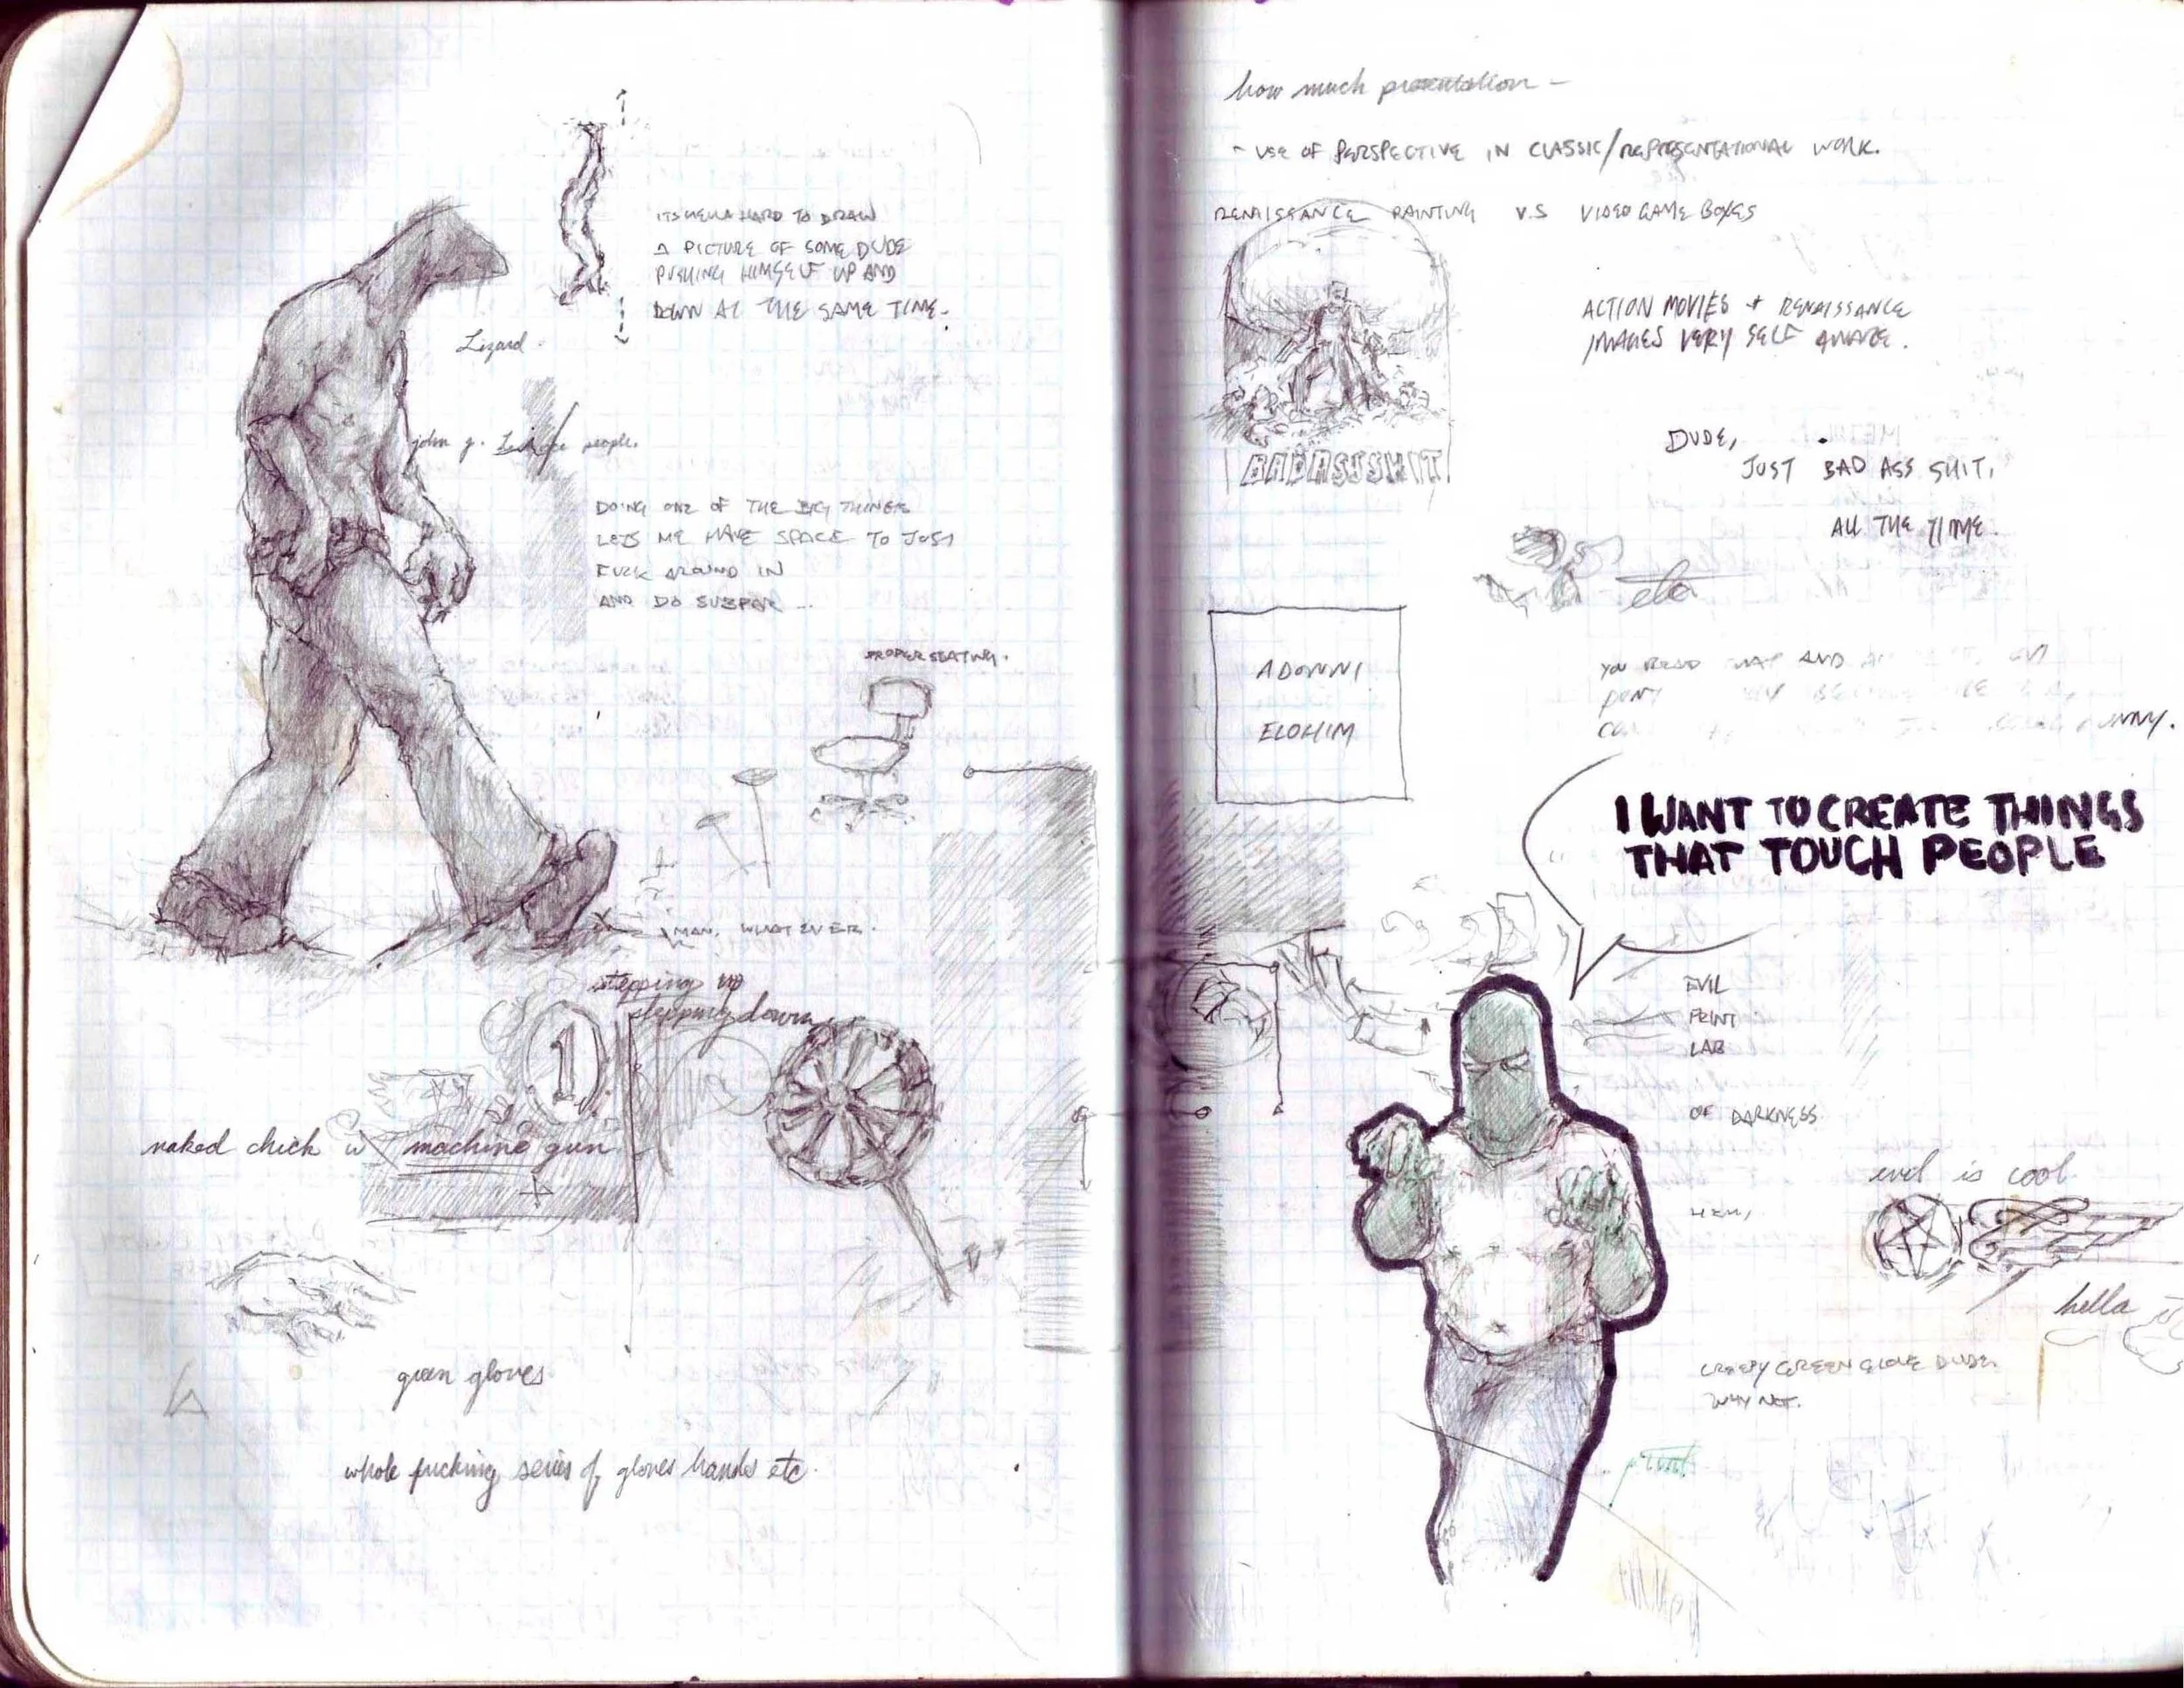 ITS HELLA HARD TO DRAW
A PICTURE OF SOME DUDE
PUSHING HIMSELF UP AND
DOWN AT THE SAME TIME.
Lizard.
john g. people.
DOING ONE OF THE BIG THINGS
LETS ME HAVE SPACE TO JUST
FUCK AROUND IN
AND DO SUBPAR ...
PROPER SEATING.
MAN, WHATEVER.
stepping up
stepping down
1
naked chick w/ machine gun
green gloves
whole fucking series of gloves hands etc.
how much presentation —
- USE OF PERSPECTIVE IN CLASSIC/REPRESENTATIONAL WORK.
RENAISSANCE PAINTING V.S VIDEO GAME BOXES
ACTION MOVIES + RENAISSANCE
IMAGES VERY SELF AWARE.
BADASSSHIT
DUDE,
JUST BAD ASS SHIT,
ALL THE TIME.
ADONNI
ELOHIM
YOU READ AND
I WANT TO CREATE THINGS
THAT TOUCH PEOPLE
EVIL
PRINT
LAB
OF DARKNESS
evil is cool
hella
CREEPY GREEN GLOVE DUDE.
WHY NOT.